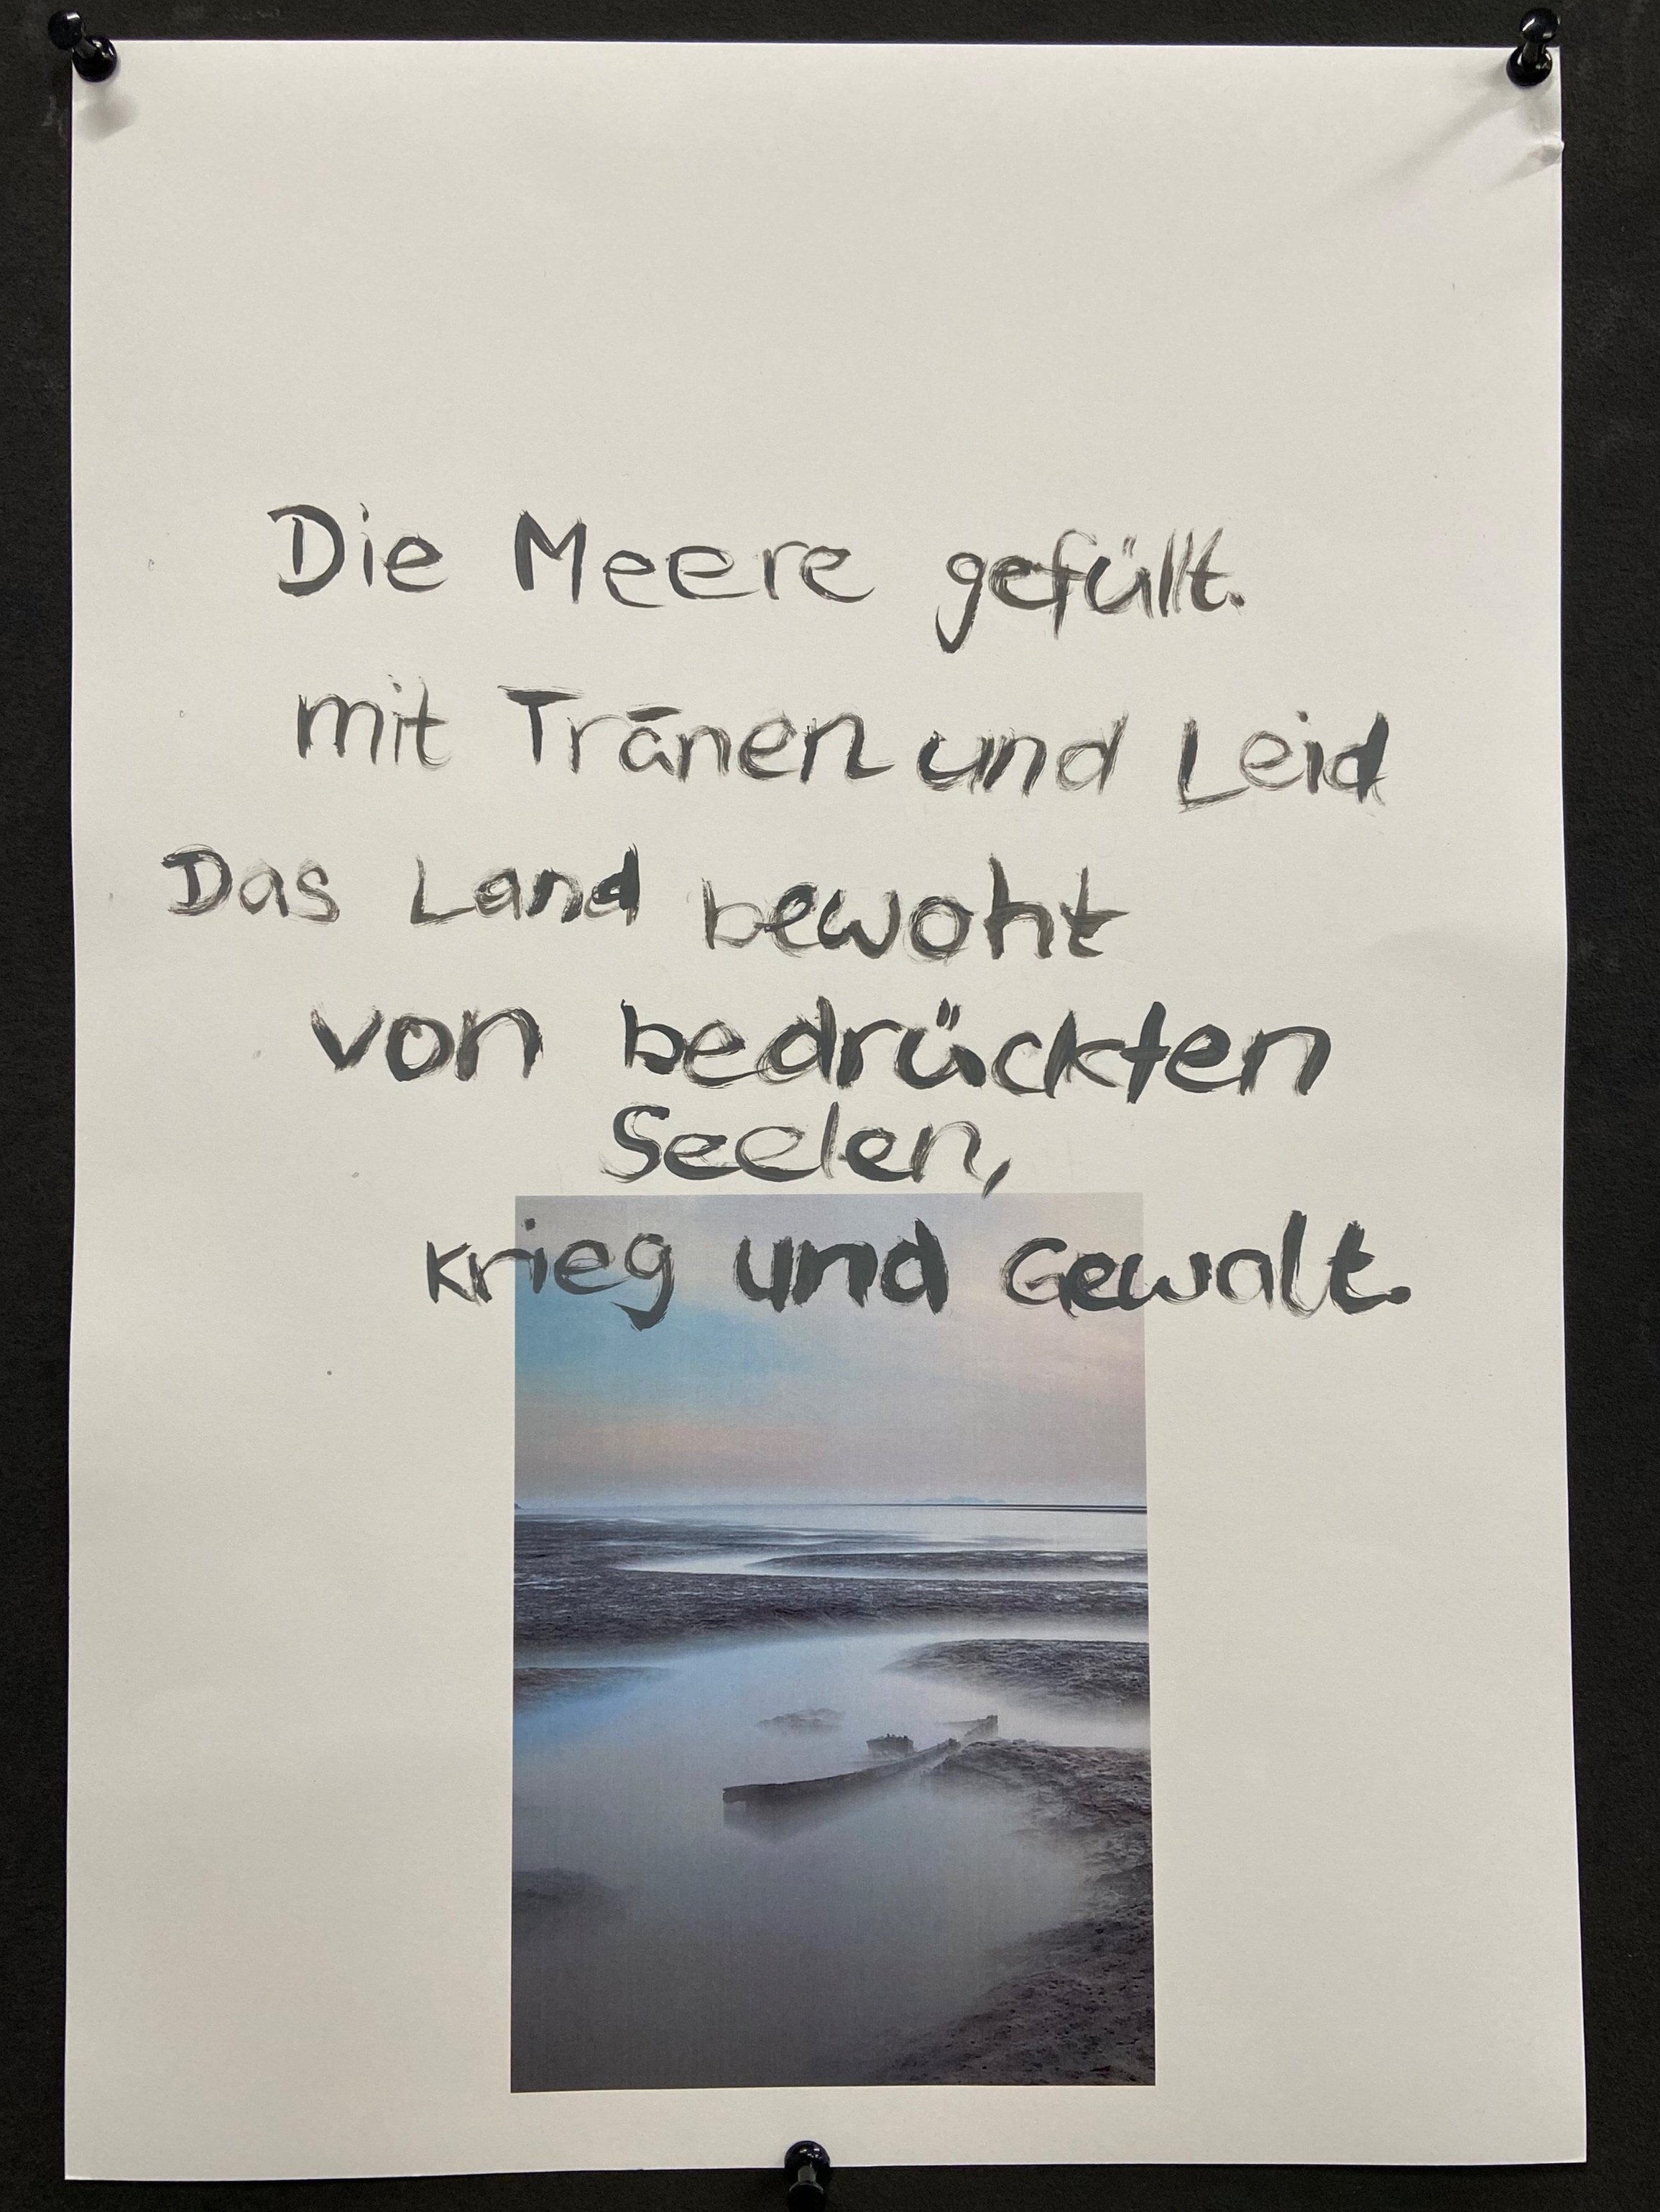 Die Meere gefüllt.
mit Tränen und Leid
Das Land bewoht
von bedrückten
Seelen,
Krieg und Gewalt.